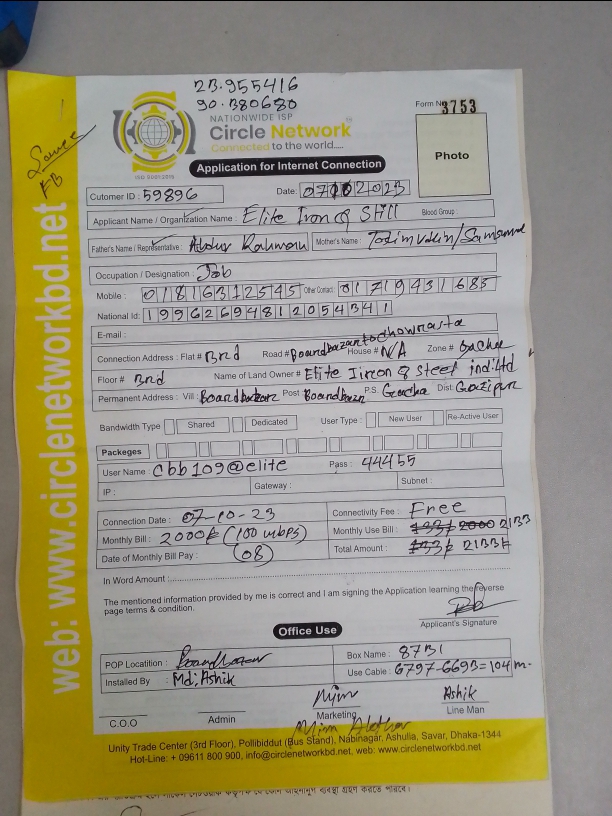 23.955416
90.380680
NATIONWIDE ISP
Circle Network
Connected to the world.....
ISO 9001:2015
Form No 3753
Photo
Application for Internet Connection
FB
web: www.circlenetworkbd.net
Cutomer ID : 59896 Date: 07102023
Applicant Name / Organization Name : Elite Iron & Still Blood Group:
Father's Name / Representative : Abdur Rahman Mother's Name :
Occupation / Designation : Job
Mobile : 01816312545 Other Contact: 01719431683
National Id: 19962694812054341
E-mail :
Connection Address : Flat # 3rd Road # Boardbazar to chowrasta House # N/A Zone # Gacha
Floor # 3rd Name of Land Owner # Elite Iircon & Steel ind:Ltd
Permanent Address : Vill: Boardbazar Post: Boardbazar P.S: Gacha Dist: Gazipur
Bandwidth Type Shared Dedicated User Type : New User Re-Active User
Packeges
User Name : cbb109@elite Pass : 44455
IP : Gateway : Subnet :
Connection Date : 07-10-23 Connectivity Fee : Free
Monthly Bill : 2000৳ (100 mbps) Monthly Use Bill : 2000 2133
Date of Monthly Bill Pay : (08) Total Amount : 2133৳
In Word Amount :
The mentioned information provided by me is correct and I am signing the Application learning the reverse
page terms & condition.
Applicant's Signature
Office Use
POP Locatition : Boardbazar Box Name : 8731
Installed By : Md: Ashik Use Cable : 6797-6693=104m-
Mim Ashik
C.O.O Admin Marketing Line Man
Mim Akthar
Unity Trade Center (3rd Floor), Pollibiddut (Bus Stand), Nabinagar, Ashulia, Savar, Dhaka-1344
Hot-Line: + 09611 800 900, info@circlenetworkbd.net, web: www.circlenetworkbd.net